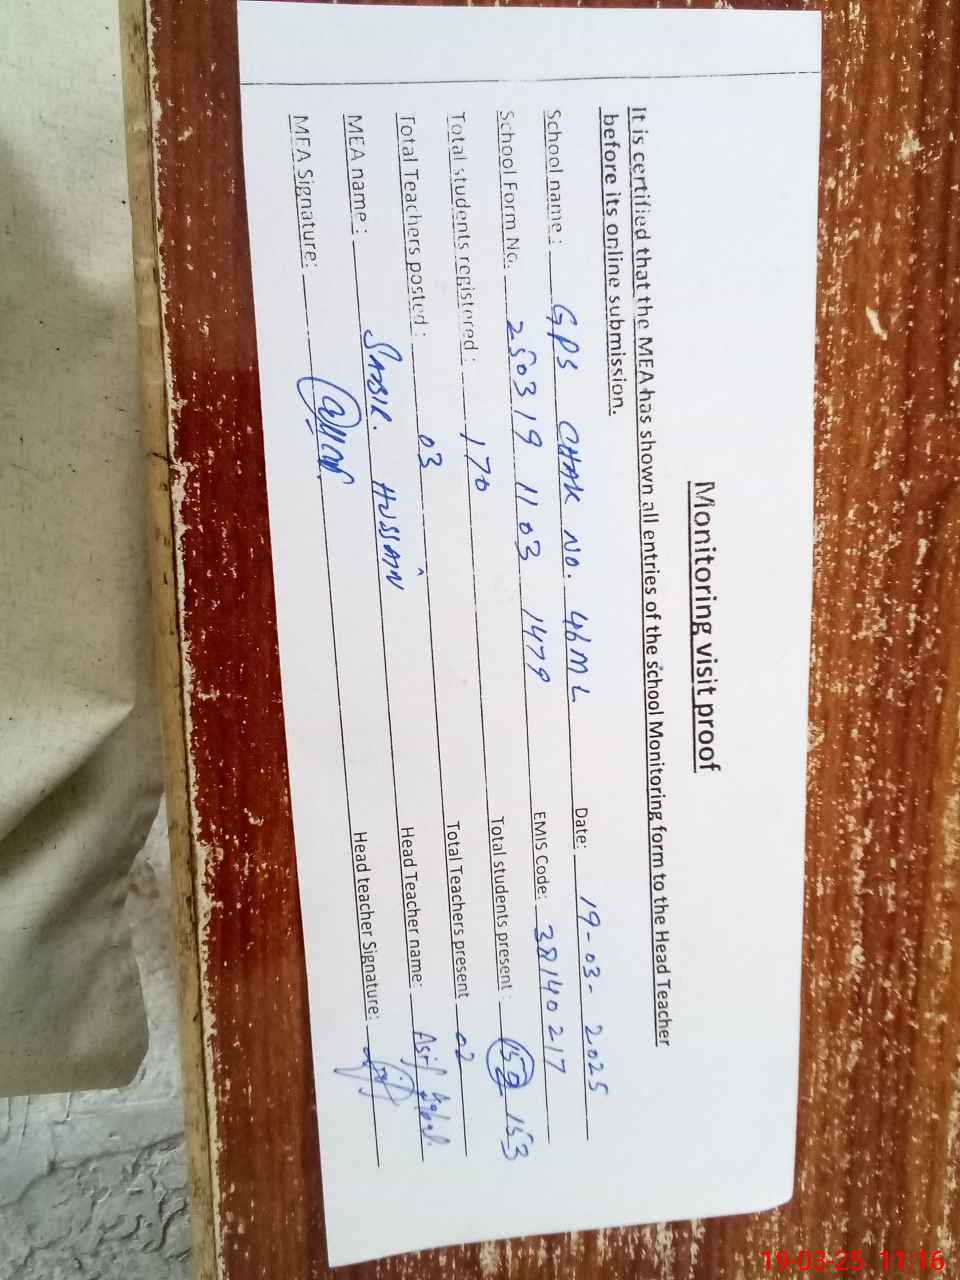 Monitoring visit proof
It is certified that the MEA has shown all entries of the school Monitoring form to the Head Teacher
before its online submission.
School name : GPS CHAK NO. 46ML Date: 19-03-2025
School Form No. 250319 1103 1479 EMIS Code: 38140217
Total students registered : 170 Total students present : 153
Total Teachers posted : 03 Total Teachers present 02
MEA name : SABIR. HUSSAIN Head Teacher name: Asif Iqbal
MEA Signature: Head teacher Signature:
19-03-25 11:16